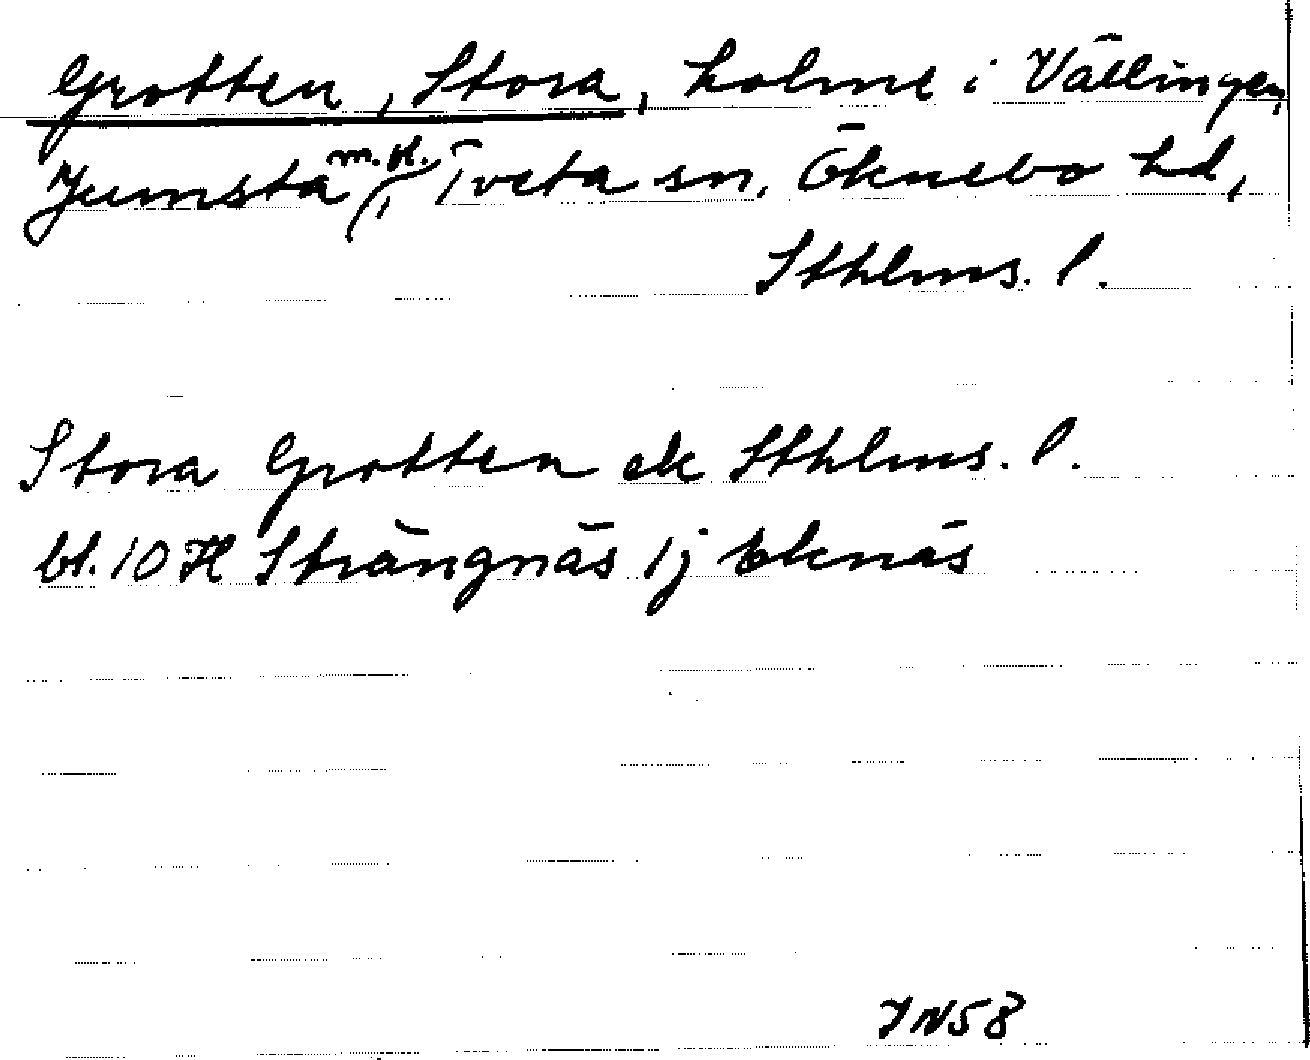 Grotten, Stora, holme i Vällingen,
Jumsta m.fl., Tveta sn, Öknebo hd,
Sthlms. l.
Stora Grotten ek Sthlms. l.
bl. 10 H Strängnäs 1j Eknäs
JN58